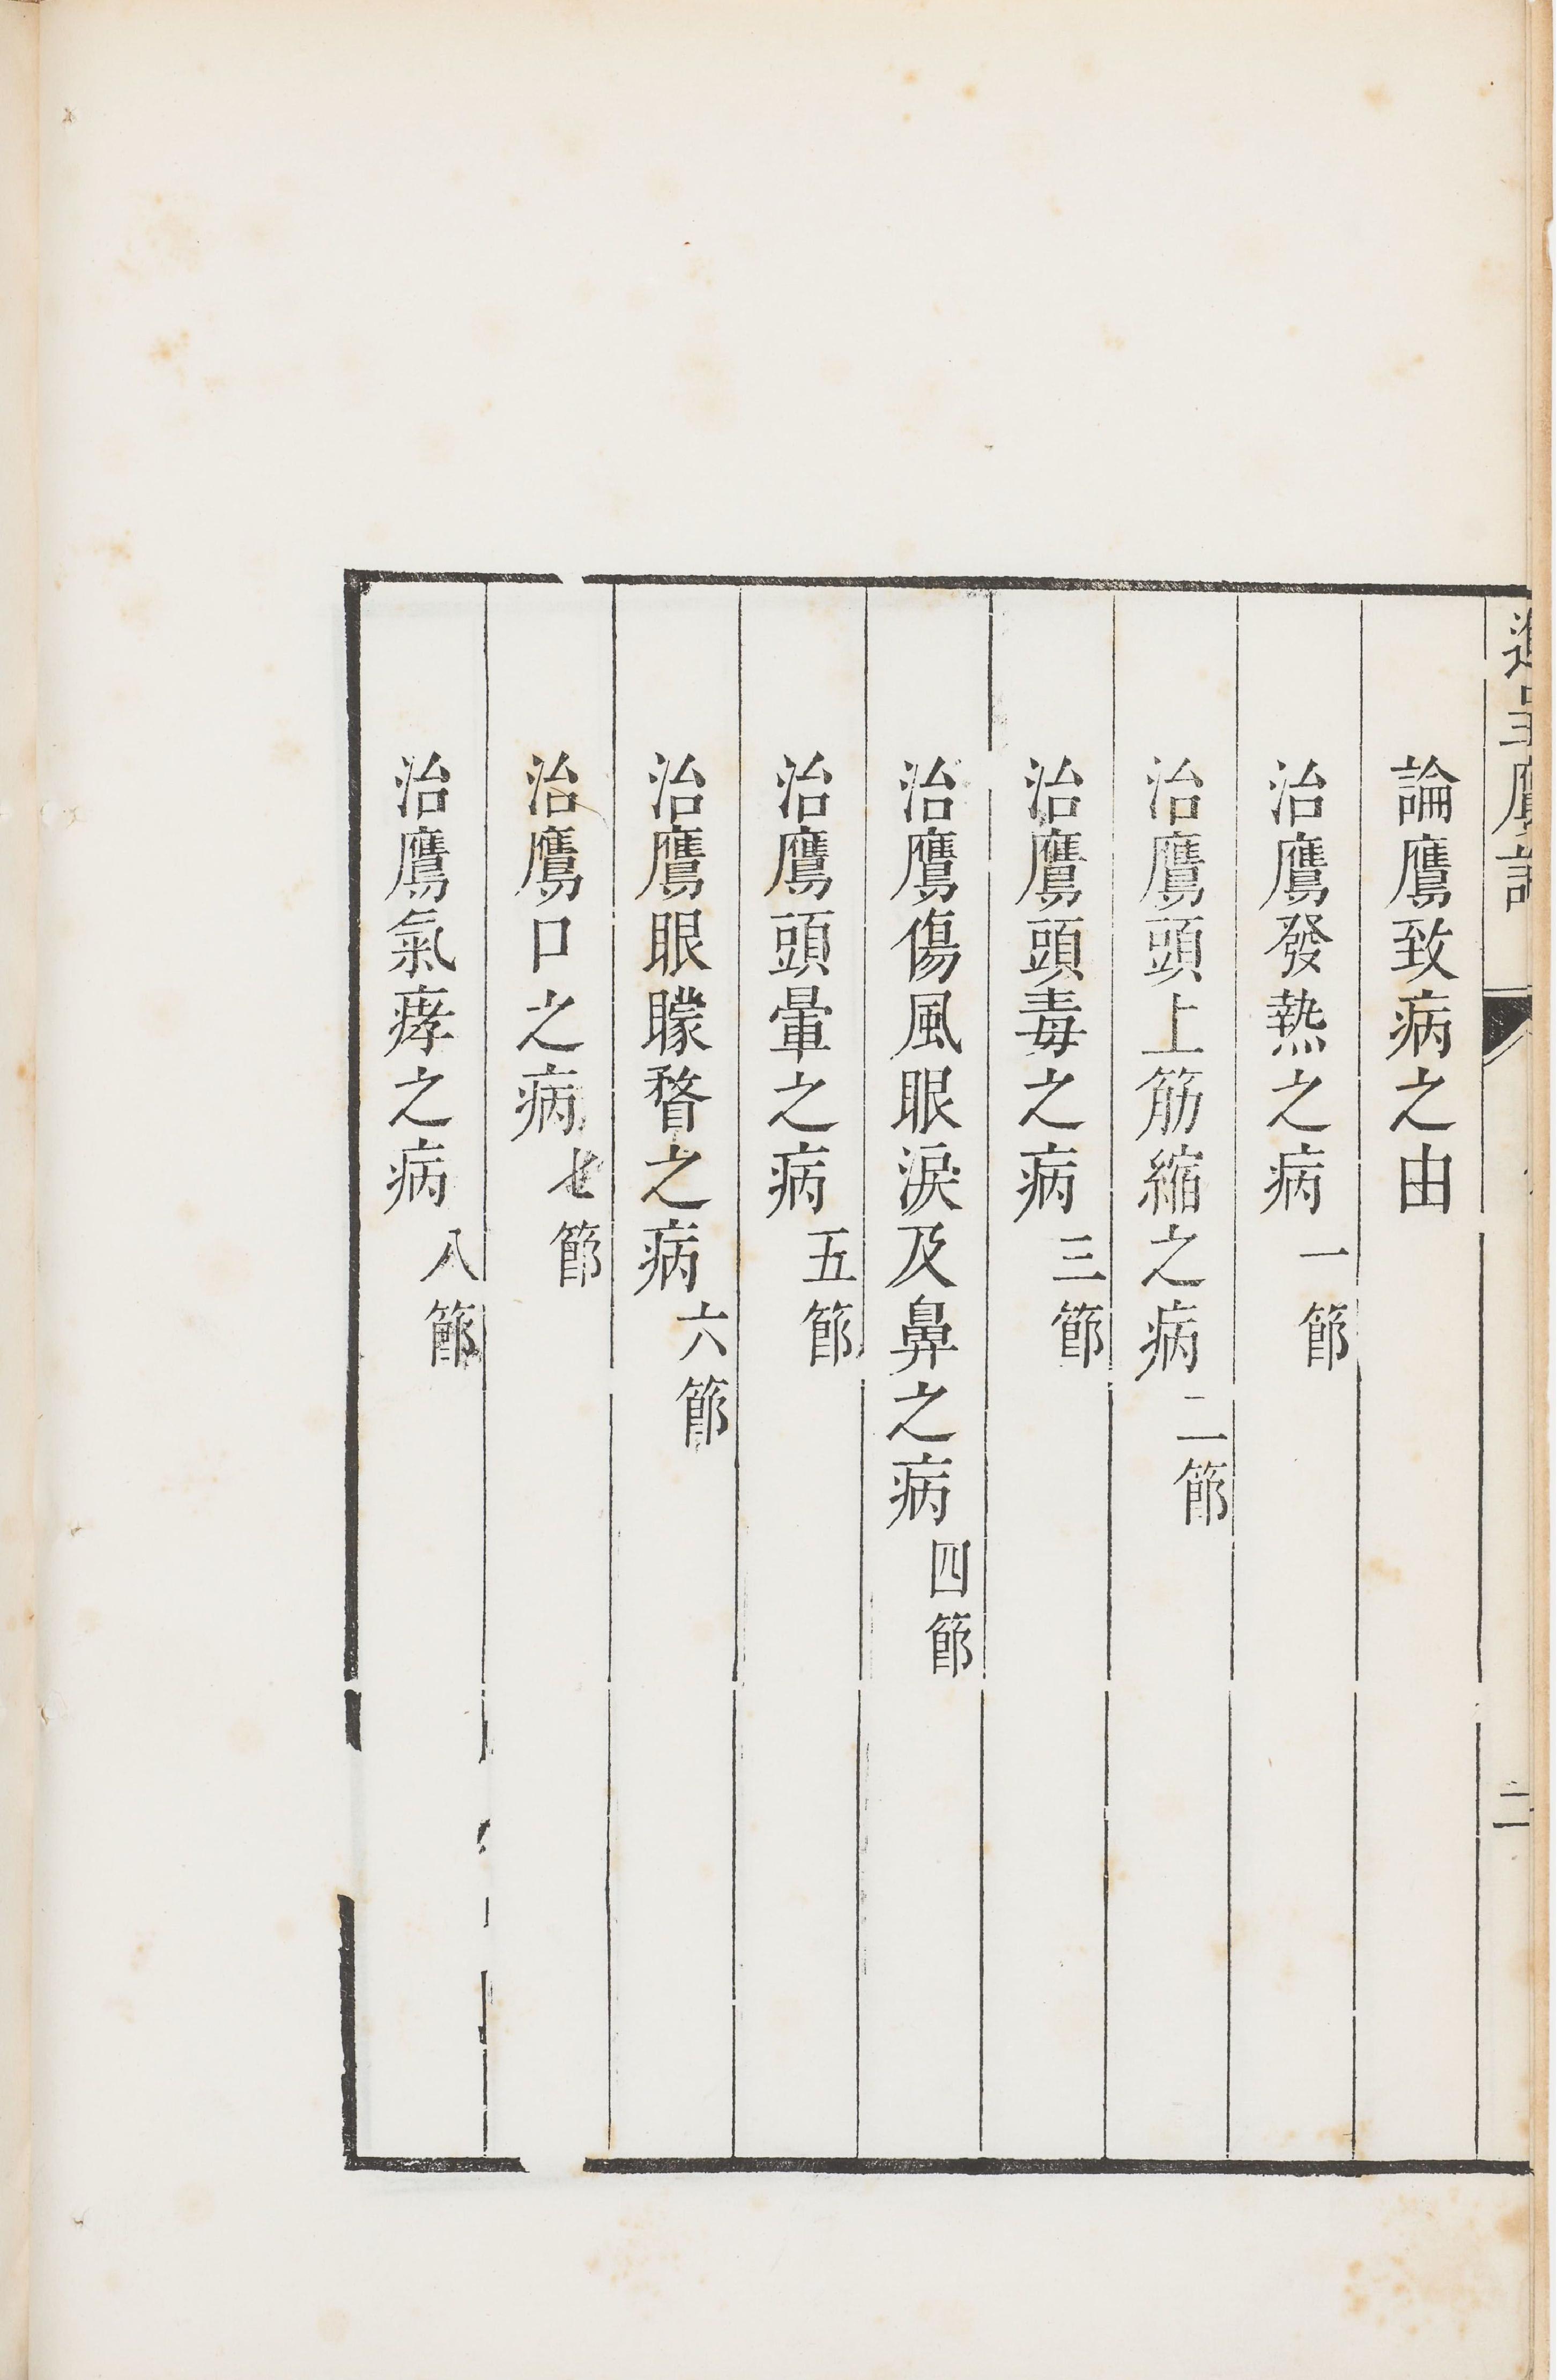 論鷹致病之由
治鷹發熱之病一節
治鷹頭上筋縮之病二節
治鷹頭毒之病三節
治鷹傷風眼淚及鼻之病四節
治鷹頭暈之病五節
治鷹眼矇瞀之病六節
治鷹口之病七節
治鷹氣哮之病八節
二